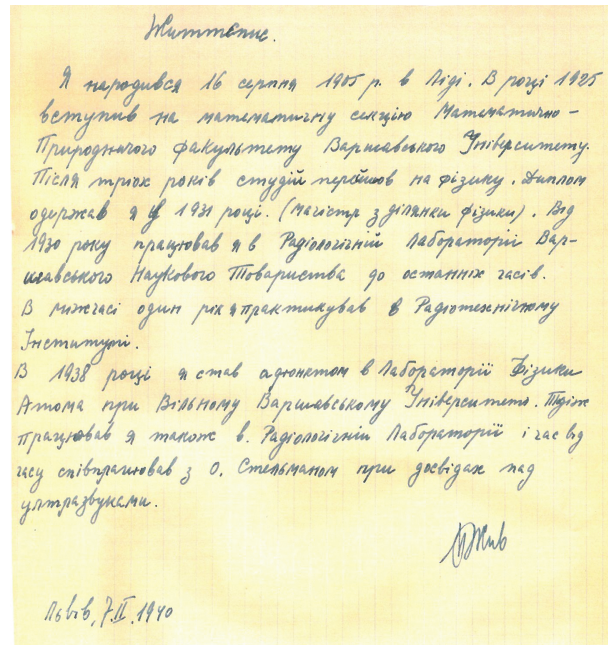 Життєпис.
Я народився 16 серпня 1905 р. в Ліді. В році 1925
вступив на математичну секцію Математично-
Природничого факультету Варшавського Університету.
Після трьох років студій перейшов на фізику. Диплом
одержав я у 1931 році. (магістр з ділянки фізики). Від
1930 року працював я в Радіологічній Лабораторії Вар-
шавського Наукового Товариства до останніх часів.
В міжчасі один рік я практикував в Радіотехнічному
Інституті.
В 1938 році я став адюнктом в Лабораторії Фізики
Атома при Вільному Варшавському Університеті.
працював я також в. Радіологічній Лабораторії і час від
часу співпрацював з О. Стельмахом при досвідах над
ултразвуками.
Львів, 7.II.1940